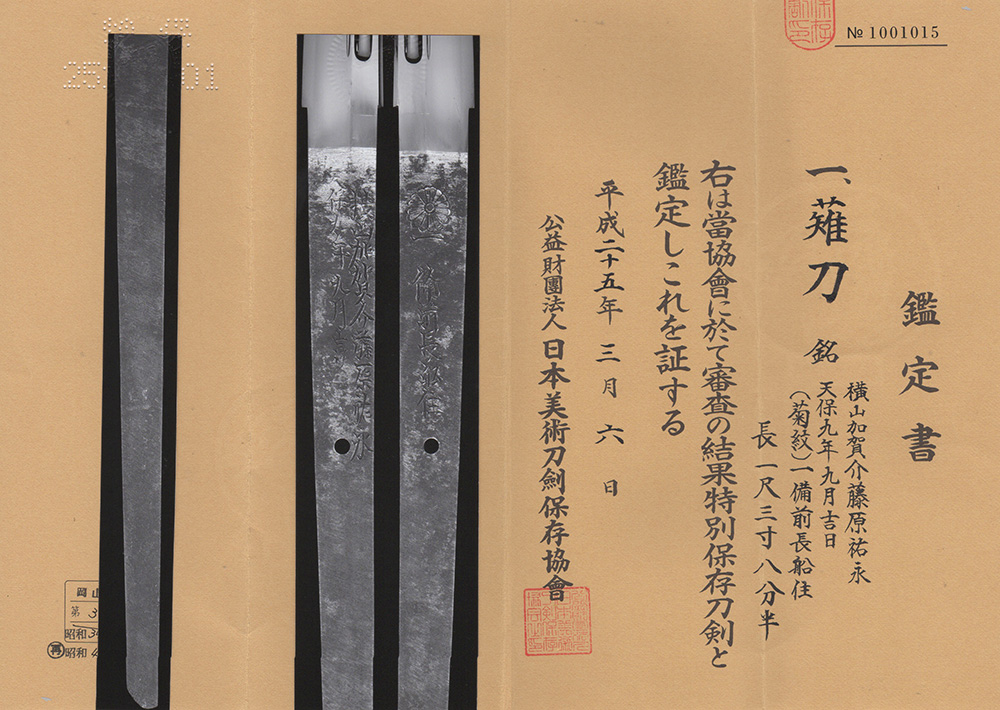 № 1001015
鑑定書
一、薙刀 銘
横山加賀介藤原祐永
天保九年九月吉日
（菊紋）一備前長船住
長一尺三寸八分半
右は當協會に於て審査の結果特別保存刀剣と
鑑定しこれを証する
平成二十五年三月六日
公益財團法人日本美術刀劍保存協會
岡山
第 3
昭和 34
再 昭和